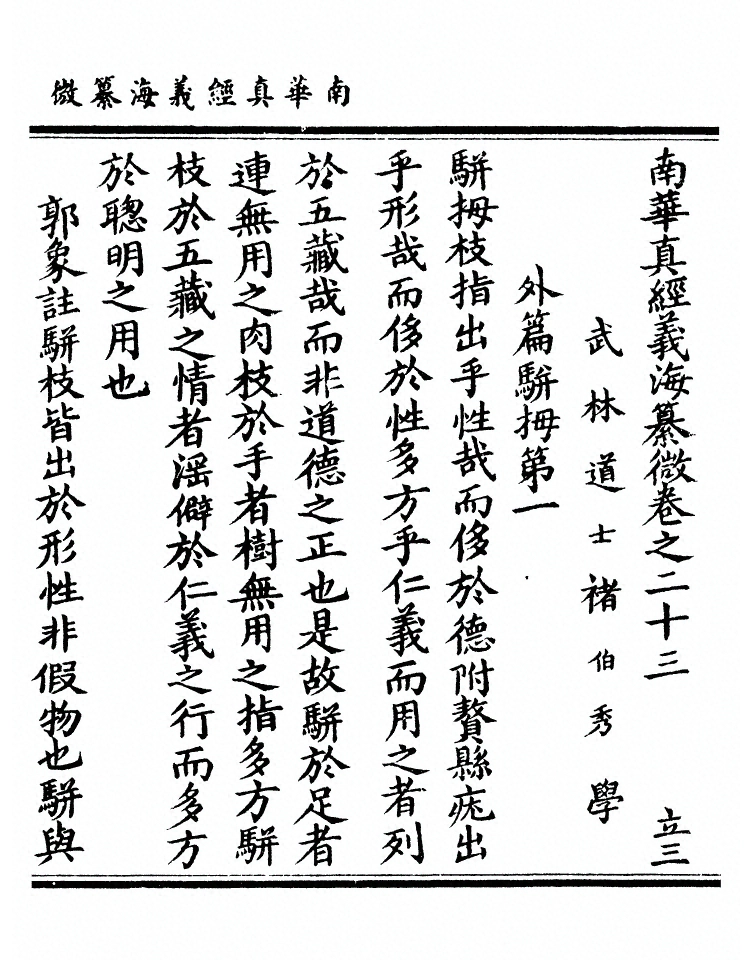 南華真經義海纂微
南華真經義海纂微卷之二十三 立三
武林道士褚伯秀學
外篇駢拇第一
駢拇枝指出乎性哉而侈於德附贅縣疣出
乎形哉而侈於性多方乎仁義而用之者列
於五藏哉而非道德之正也是故駢於足者
連無用之肉枝於手者樹無用之指多方駢
枝於五藏之情者滛僻於仁義之行而多方
於聰明之用也
郭象註駢枝皆出於形性非假物也駢與